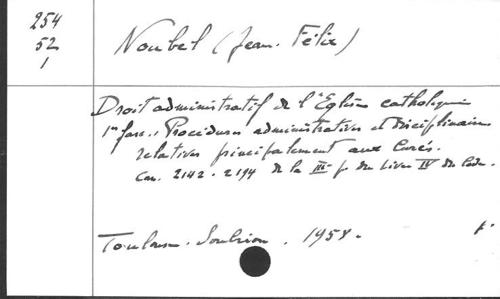 254
52
1
Noubel (Jean. Félix)
Droit administratif de l'Eglise catholique
1er fasc.: Procédures administratives et disciplinaires
relatives principalement aux Curés.
Can. 2142 - 2194 de la IIIe p. du Livre IV du Code.
Toulouse. 1958.